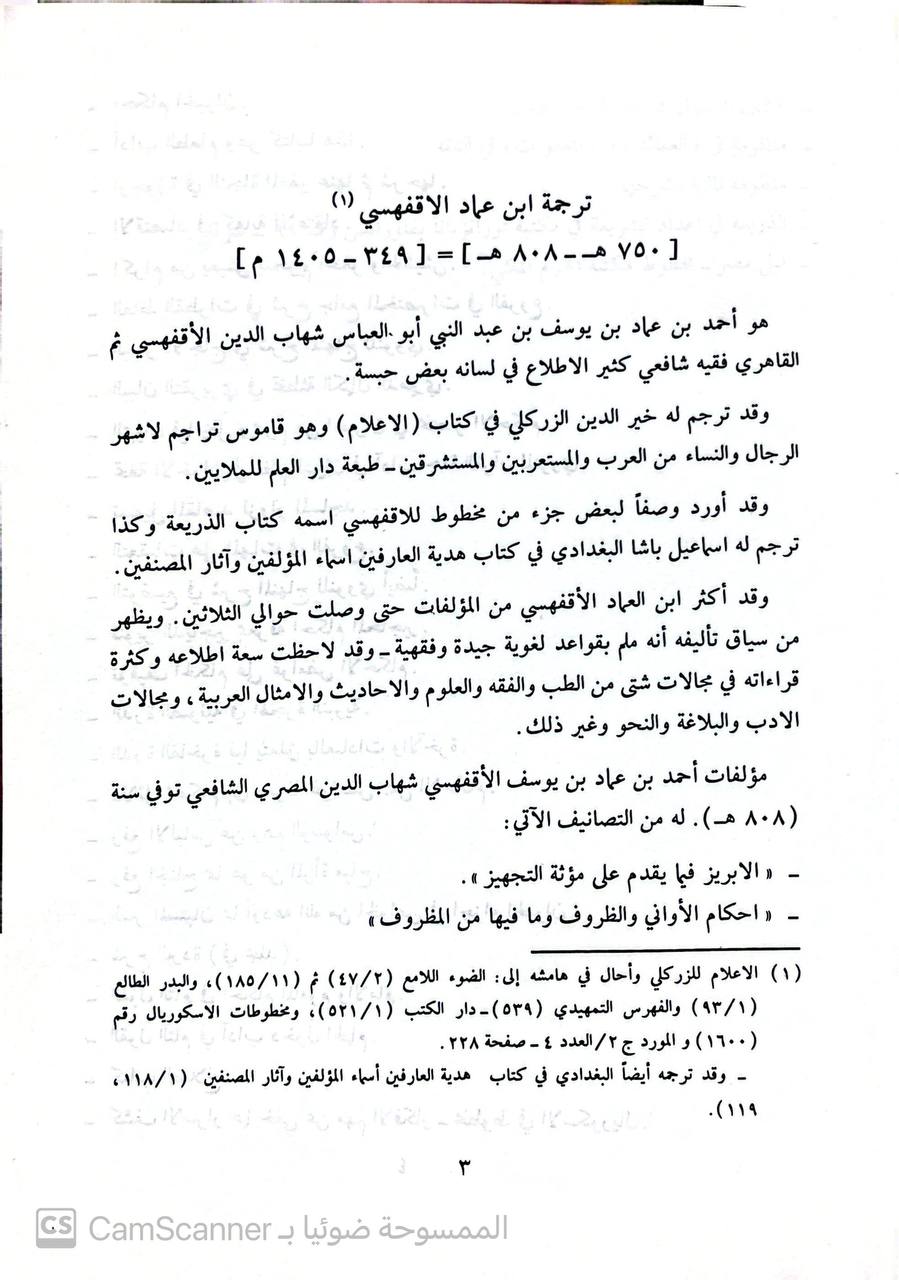 ترجمة ابن عماد الاقفهسي (١)
[ ٧٥٠ هـ ـ ٨٠٨ هـ ] = [ ٣٤٩ ـ ١٤٠٥ م ]
هو أحمد بن عماد بن يوسف بن عبد النبي أبو العباس شهاب الدين الأقفهسي ثم
القاهري فقيه شافعي كثير الاطلاع في لسانه بعض حبسة .
وقد ترجم له خير الدين الزركلي في كتاب (الاعلام) وهو قاموس تراجم لاشهر
الرجال والنساء من العرب والمستعربين والمستشرقين ـ طبعة دار العلم للملايين .
وقد أورد وصفاً لبعض جزء من مخطوط للاقفهسي اسمه كتاب الذريعة وكذا
ترجم له اسماعيل باشا البغدادي في كتاب هدية العارفين اسماء المؤلفين وآثار المصنفين .
وقد أكثر ابن العماد الأقفهسي من المؤلفات حتى وصلت حوالي الثلاثين . ويظهر
من سياق تأليفه أنه ملم بقواعد لغوية جيدة وفقهية ـ وقد لاحظت سعة اطلاعه وكثرة
قراءاته في مجالات شتى من الطب والفقه والعلوم والاحاديث والامثال العربية ، ومجالات
الادب والبلاغة والنحو وغير ذلك .
مؤلفات أحمد بن عماد بن يوسف الأقفهسي شهاب الدين المصري الشافعي توفي سنة
(٨٠٨ هـ) . له من التصانيف الآتي :
ـ « الابريز فيما يقدم على مؤثة التجهيز » .
ـ « احكام الأواني والظروف وما فيها من المظروف »
(١) الاعلام للزركلي وأحال في هامشه إلى : الضوء اللامع (٤٧/٢) ثم (١٨٥/١١) ، والبدر الطالع
(٩٣/١) والفهرس التمهيدي (٥٣٩) ـ دار الكتب (٥٢١/١) ، ومخطوطات الاسكوريال رقم
(١٦٠٠) و المورد ج ٢/ العدد ٤ ـ صفحة ٢٢٨ .
ـ وقد ترجمه أيضاً البغدادي في كتاب هدية العارفين أسماء المؤلفين وآثار المصنفين (١١٨/١ ،
١١٩) .
٣
CS CamScanner الممسوحة ضوئيا بـ